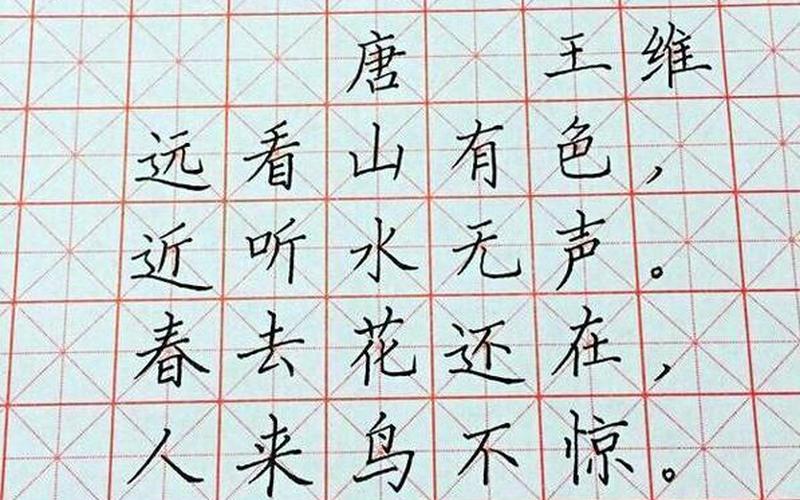 唐 王维
远看山有色，
近听水无声。
春去花还在，
人来鸟不惊。